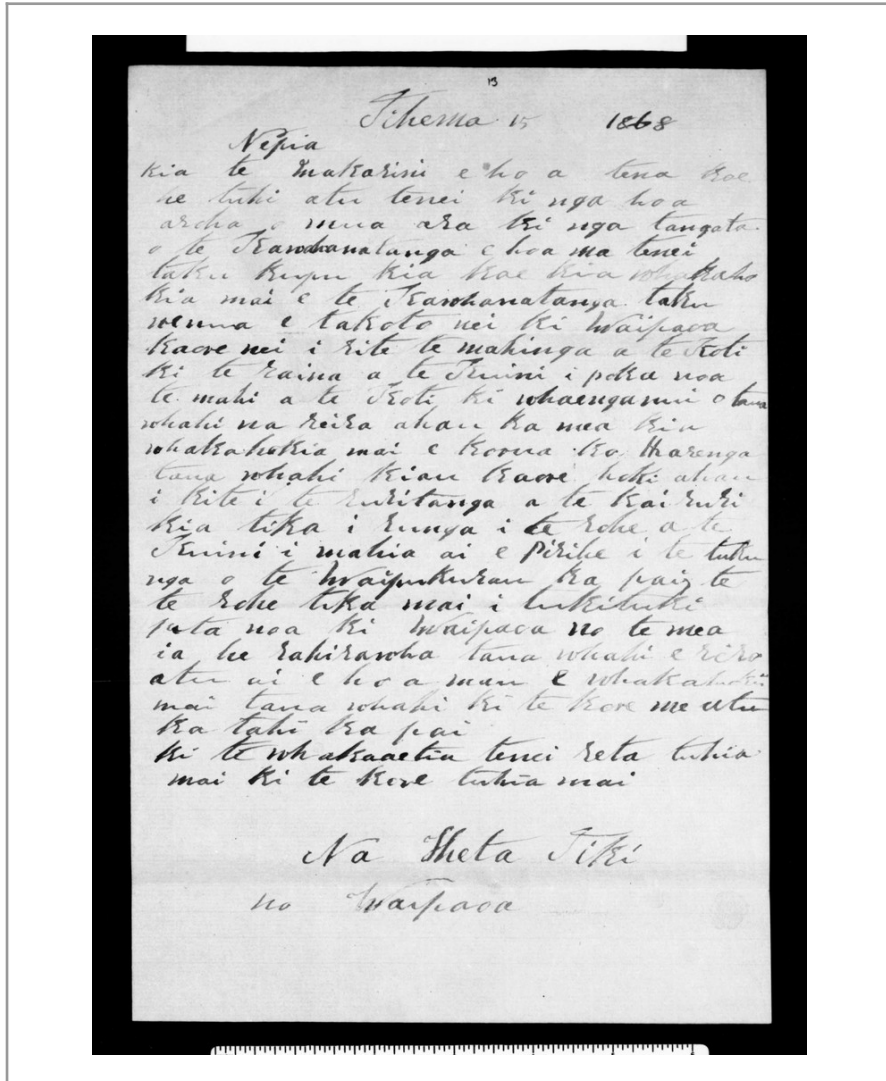 13
Tihema 15 1868
Nepia
Kia te Makarini e ho a tena koe
he tuhi atu tenei ki nga hoa
aroha o mua ara ki nga tangata
o te Kawhanatanga e hoa ma tenei
taku kupu kia koe kia whakaho
kia mai e te Kawhanatanga taku
wenua e takoto nei ki Waipaoa
kaore nei i rite te mahinga a te Koti
ki te raina a te Kuini i poka noa
te mahi a te Koti ki whaenganui o tana
whahi na reira ahau ka mea kia
whakahokia mai e korua ko
tana whahi kiau kaore hoki ahau
i kite i te ruritanga a te kai ruri
kia tika i runga i te rohe a te
Kuini i mahia ai e Pirihe i te tuku
nga o te Waipukurau ka pai te
te rohe tika mai i tukituki
puta noa ki Waipaoa no te mea
ia he rahirawha tana whahi e riro
atu ai e ho a mau e whakahokii
mai tana whahi ki te kore me utu
ka tahi ka pai
ki te whakaaetia tenei reta tuhia
mai ki te kore tuhia mai
Na Heta Tiki
no Waipaoa